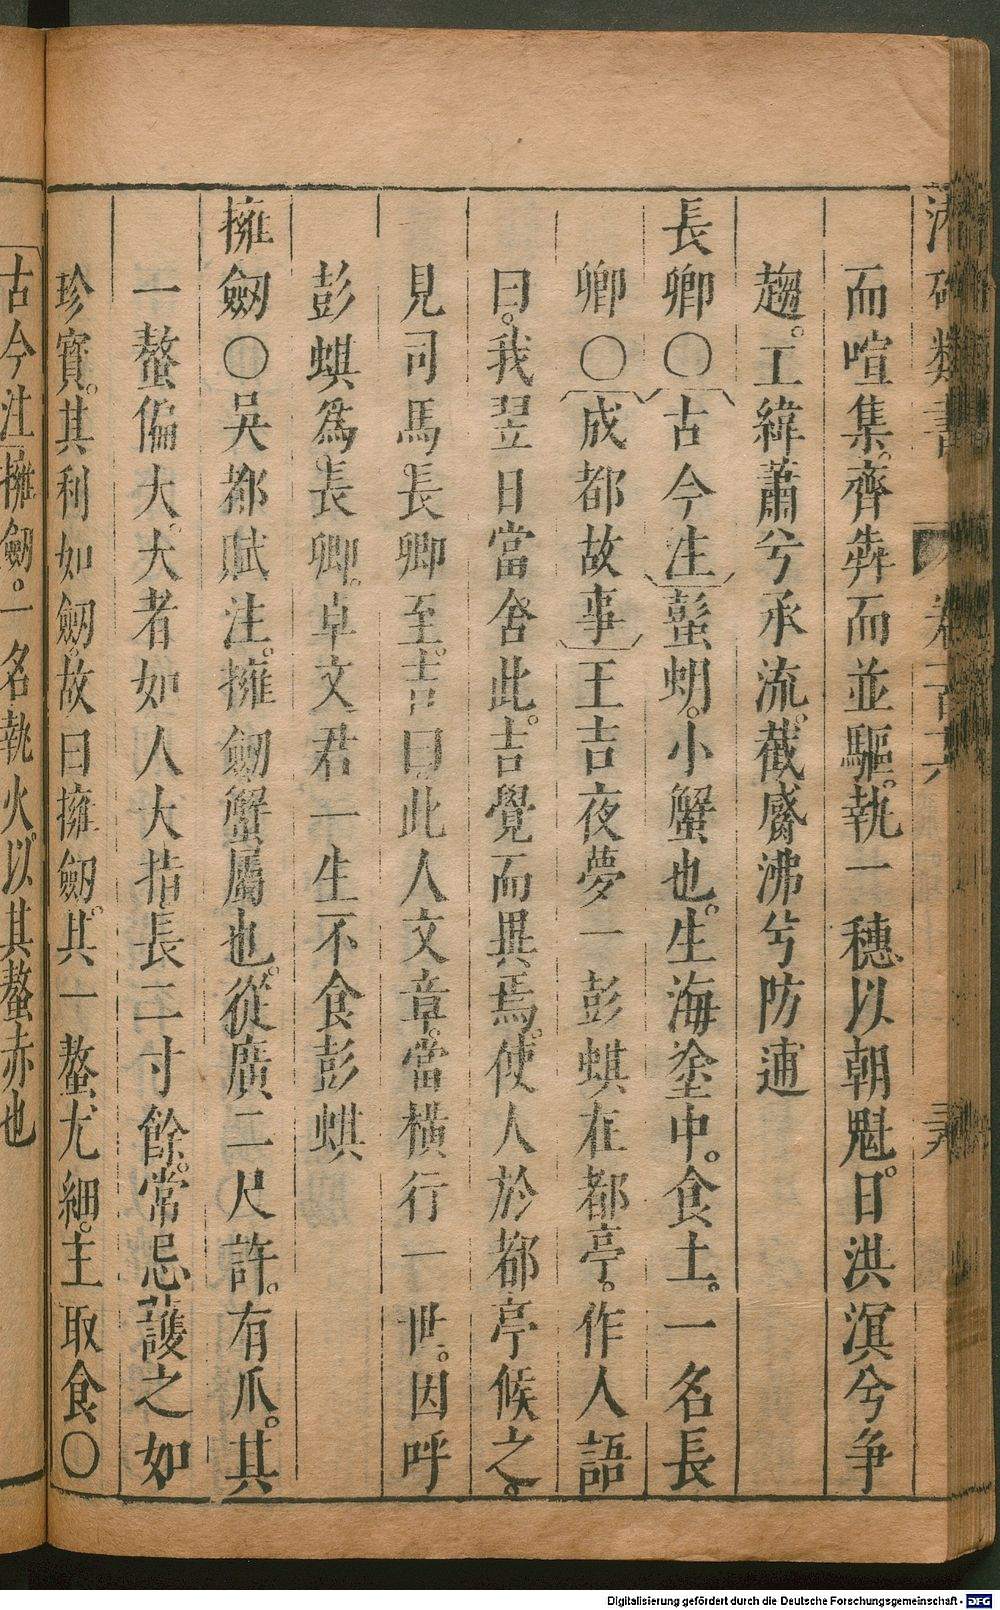 而喧集。齊犇而並驅。執一穗。以朝魁。曰洪溟兮争
趨。工緯蕭兮承流。截䲁沸兮防逋
長卿〇古今注蟛蚏。小蟹也。生海塗中。食土。一名長
卿〇成都故事王吉夜夢一彭蜞在都亭。作人語
曰。我翌日當舍此。吉覺而異焉。使人於都亭候之。
見司馬長卿至。吉曰。此人文章。當橫行一世。因呼
彭蜞爲長卿。卓文君一生不食彭蜞
擁劒〇吳都賦注。擁劒蟹屬也。從廣二尺許。有爪。其
一螯偏大。大者如人大指。長二寸餘。常忌護之如
珍寶。其利如劒。故曰擁劒。其一螯尤細。主取食〇
古今注擁劒。一名執火。以其螯赤也
Digitalisierung gefördert durch die Deutsche Forschungsgemeinschaft - DFG